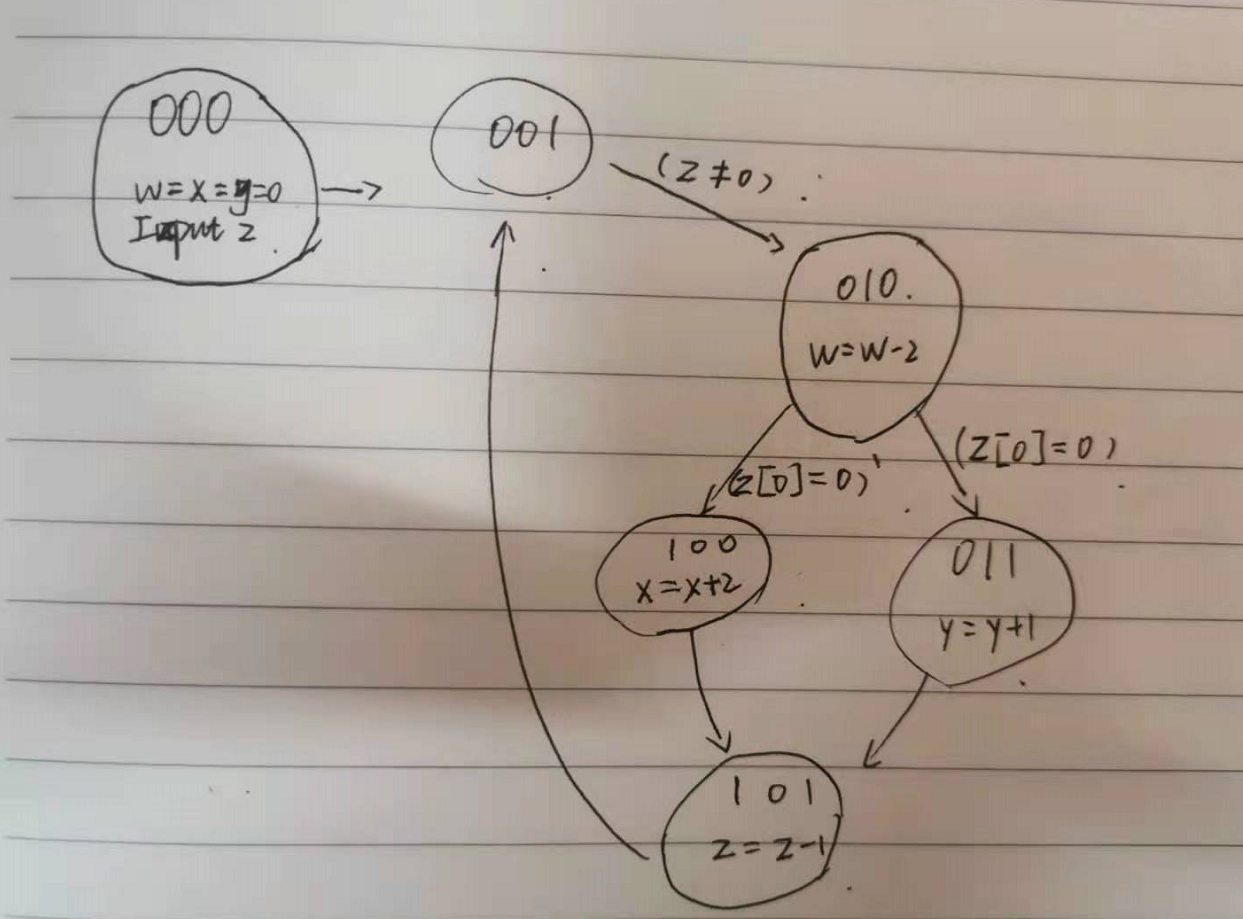 000
w=x=y=0
Input z
001
(z≠0)
010.
w=w-2
(z[0]=0)'
(z[0]=0)
100
x=x+2
011
y=y+1
101
z=z-1